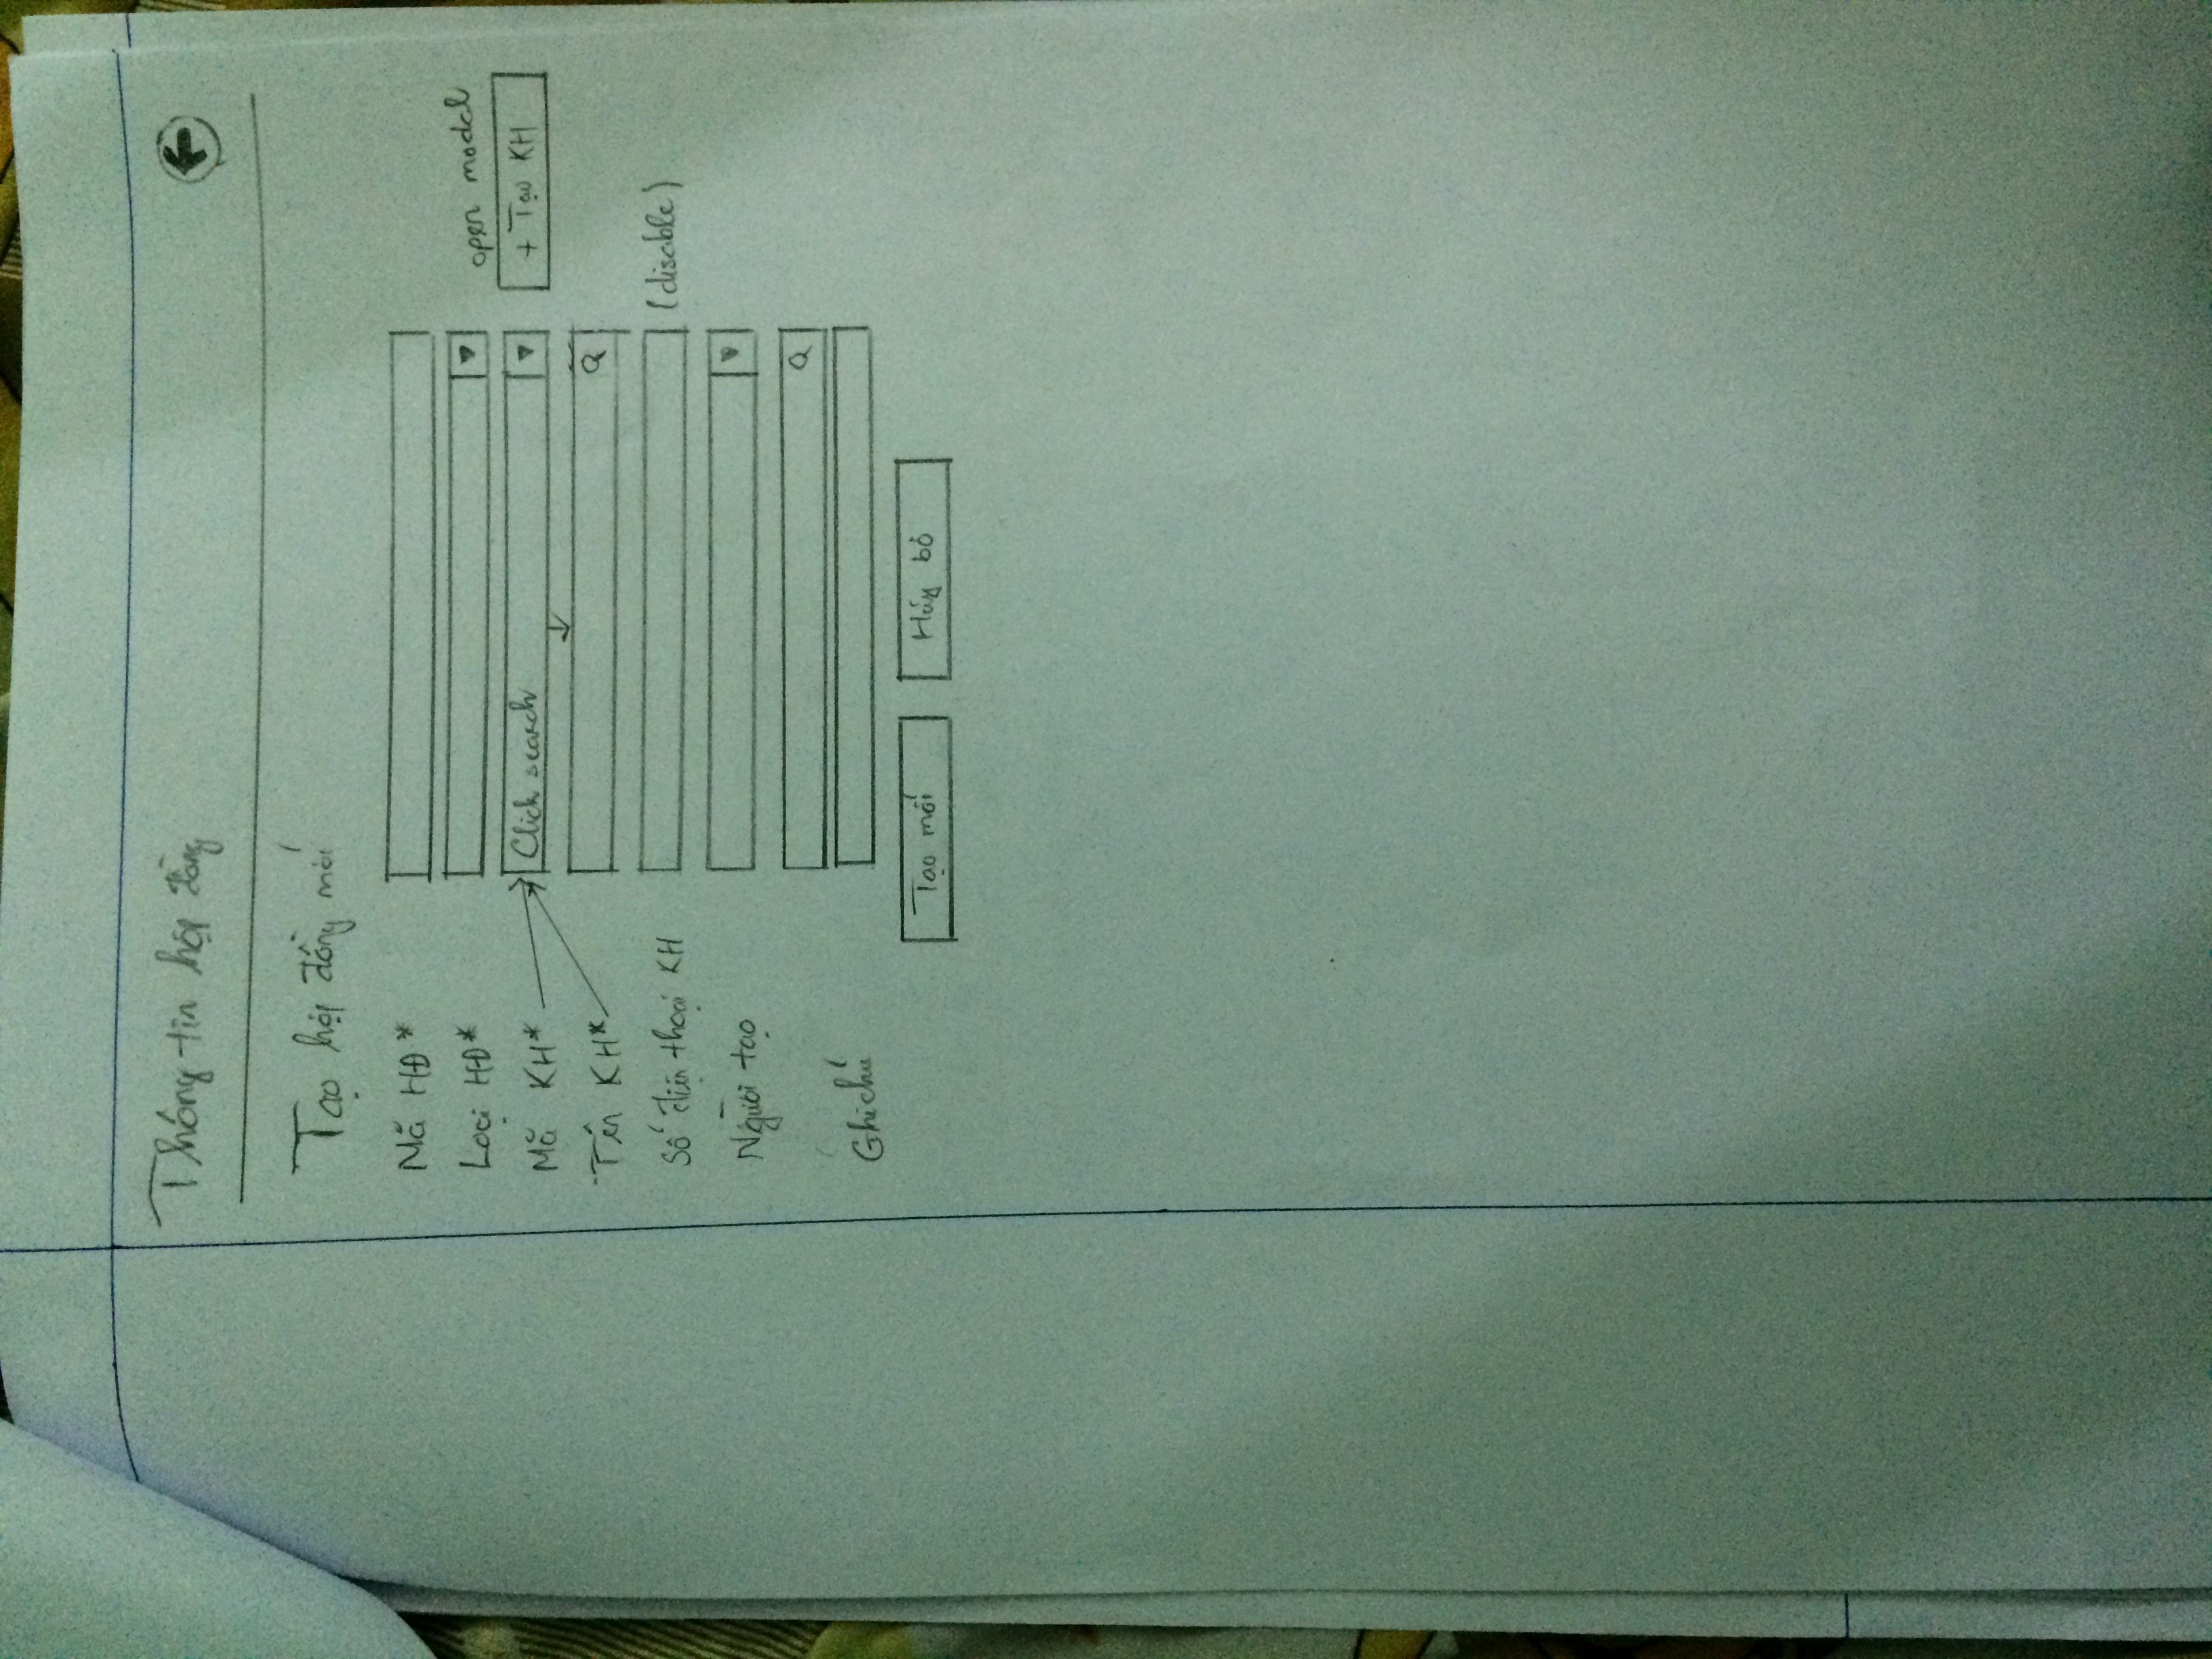 Thông tin hợp đồng
Tạo hợp đồng mới
Mã HĐ*
Loại HĐ*
open modal
Mã KH*
Click search
+ Tạo KH
Tên KH*
Số điện thoại KH
(disable)
Người tạo
Ghi chú
Tạo mới
Hủy bỏ